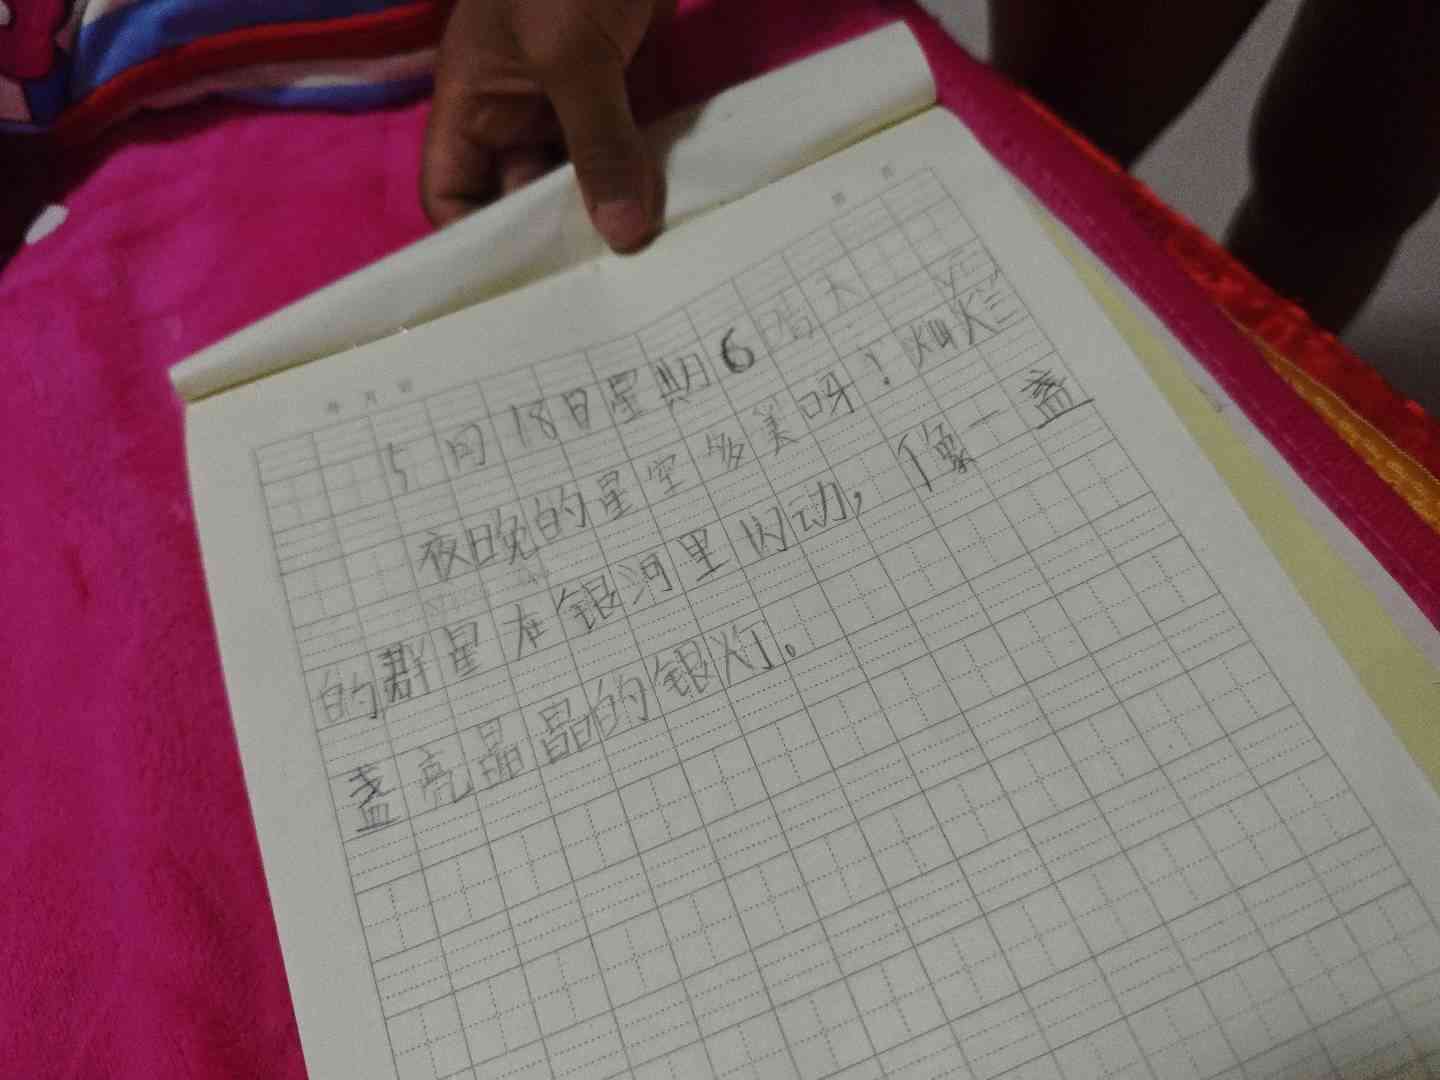 5月18日星期6 晴天
夜晚的星空多美呀！灿烂
的群星在银河里闪动，像一盏
盏亮晶晶的银灯。